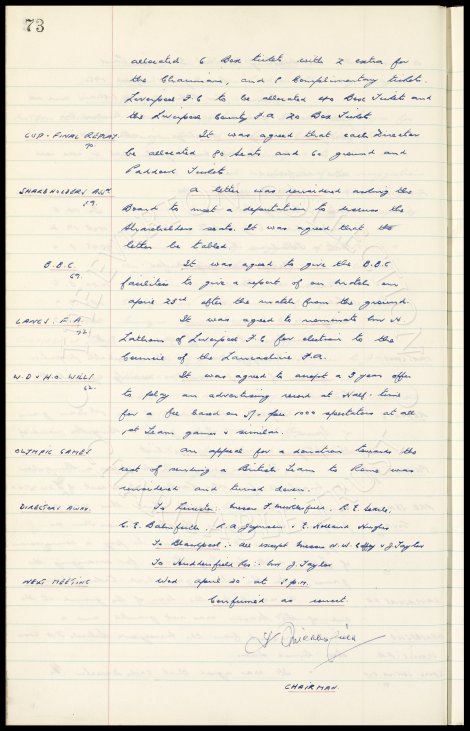 73
allocated 6 Box tickets with 2 extra for
the Chairman, and 8 Complimentary tickets.
Liverpool F.C to be allocated 40 Box Tickets and
the Liverpool County F.A 20 Box Tickets
CUP-FINAL REPLAY. It was agreed that each Director
70.
be allocated 80 Seats and 60 ground and
Paddock Tickets
SHAREHOLDERS ASSN A letter was considered asking the
59.
Board to meet a deputation to discuss the
Shareholders seats. It was agreed that the
letter be tabled.
B.B.C. It was agreed to give the B.B.C.
69.
facilities to give a report of our match on
April 23rd after the match from the ground.
LANCS. F.A. It was agreed to nominate Mr
72.
Latham of Liverpool F.C for election to the
Council of the Lancashire F.A.
W.D & H.O. WILLS It was agreed to accept a 3 year offer
62.
to play an advertising record at Half-time
for a fee based on 5/- per 1000 spectators at all
1st Team games & similar.
OLYMPIC GAMES An appeal for a donation towards the
cost of sending a British Team to Rome was
considered and turned down.
DIRECTORS AWAY. To Leicester: Messrs F. Micklesfield, R.E. Searle,
C.E. Balmforth, R.A Joynson & E. Holland Hughes
To Blackpool :- All except Messrs N.W. Coffey & J Taylor
To Huddersfield Res :- Mr J Taylor
NEXT MEETING Wed April 20 at 5 p.m.
Confirmed as correct.
CHAIRMAN.